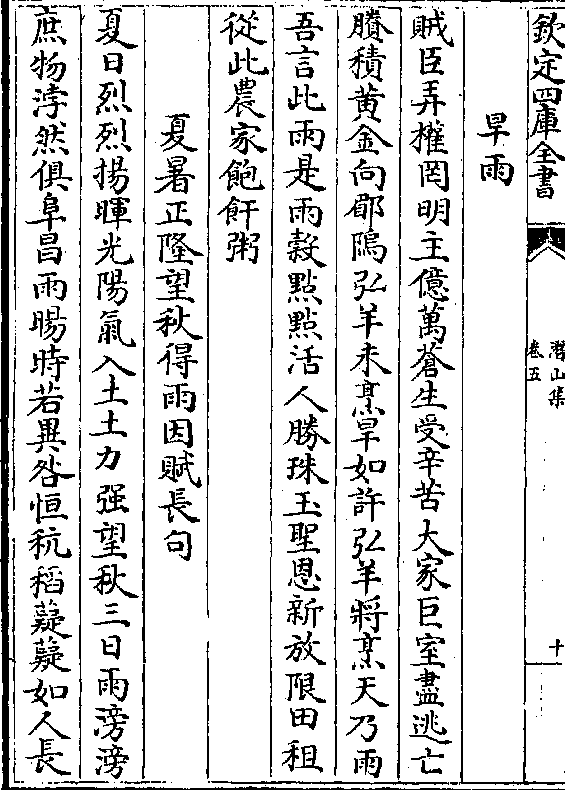 欽定四庫全書
潛山集
卷五
十
旱雨
賊臣弄權罔明主億萬蒼生受辛苦大家巨室盡逃亡
賸積黃金向郿隖弘羊未烹旱如許弘羊將烹天乃雨
吾言此雨是雨穀點點活人勝珠玉聖恩新放限田租
從此農家飽飦粥
夏暑正隆望秋得雨因賦長句
夏日烈烈揚暉光陽氣入土土力强望秋三日雨滂滂
庶物浡然俱阜昌雨暘時若異咎恒秔稻薿薿如人長